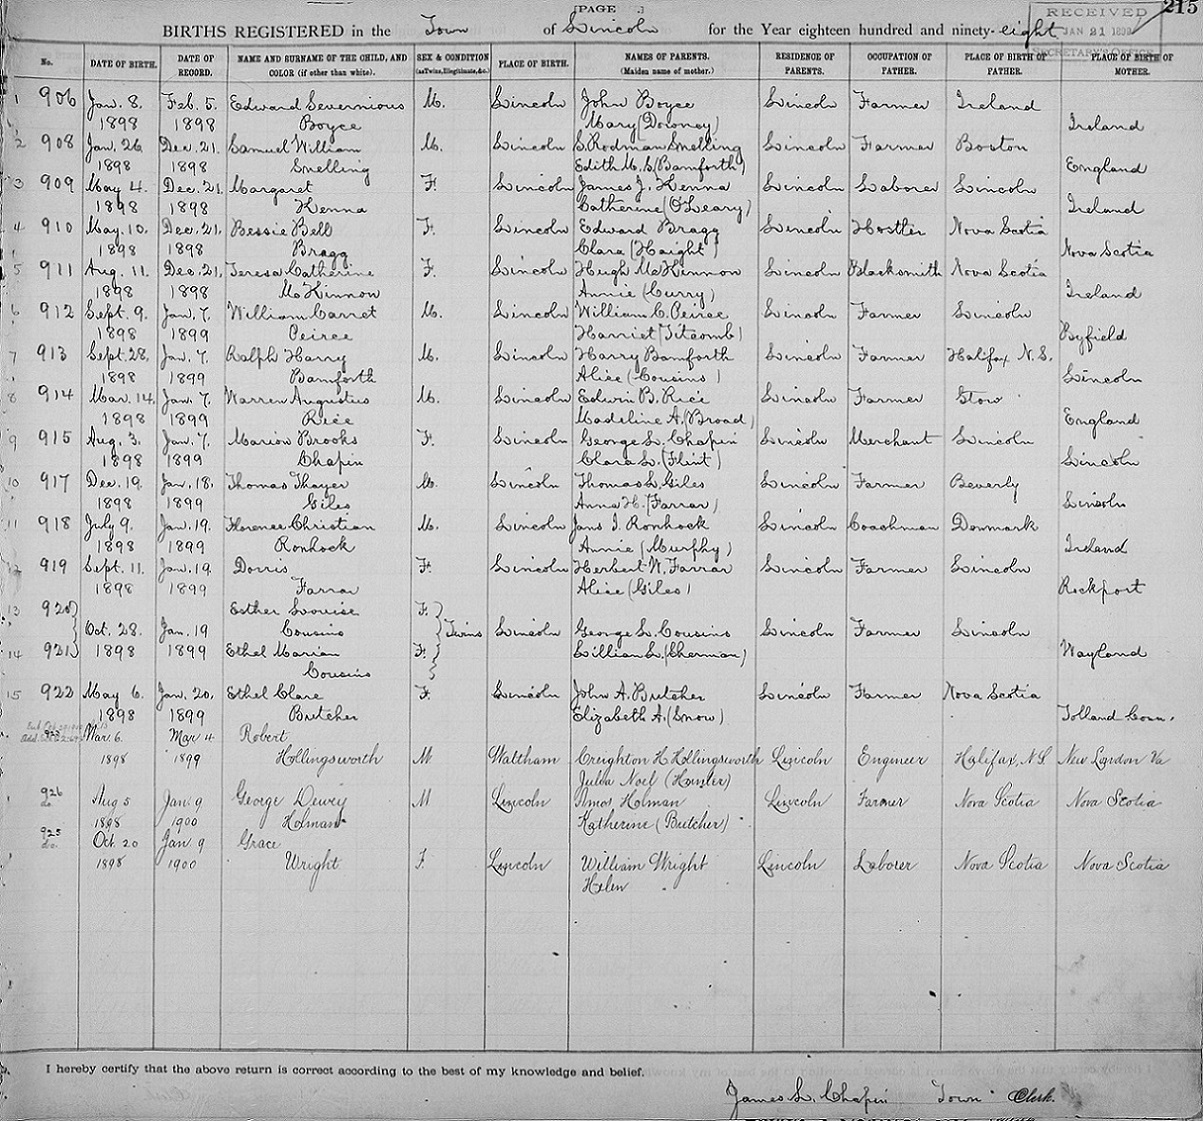 [PAGE ] 215
RECEIVED
JAN 21 1899
SECRETARY'S OFFICE
BIRTHS REGISTERED in the Town of Lincoln for the Year eighteen hundred and ninety-eight
No. DATE OF BIRTH. DATE OF RECORD. NAME AND SURNAME OF THE CHILD, AND COLOR (if other than white). SEX & CONDITION (as Twins, Illegitimate, &c.) PLACE OF BIRTH. NAMES OF PARENTS. (Maiden name of mother.) RESIDENCE OF PARENTS. OCCUPATION OF FATHER. PLACE OF BIRTH OF FATHER. PLACE OF BIRTH OF MOTHER.
1 906 Jan. 8. Feb. 5. Edward Severnious M. Lincoln John Boyce Lincoln Farmer Ireland
1898 1898 Boyce Mary (Downey) Ireland
2 908 Jan. 26. Dec. 21. Samuel William M. Lincoln S. Rodman Snelling Lincoln Farmer Boston
1898 1898 Snelling Edith M. G. (Bamforth) England
3 909 May 4. Dec. 21. Margaret F. Lincoln James J. Kenna Lincoln Laborer Lincoln
1898 1898 Kenna Catherine (O'Leary) Ireland
4 910 May. 10. Dec. 21. Bessie Bell F. Lincoln Edward Bragg Lincoln Hostler Nova Scotia
1898 1898 Bragg Clara (Haight) Nova Scotia
5 911 Aug. 11. Dec. 21. Teresa Catherine F. Lincoln Hugh McKinnon Lincoln Blacksmith Nova Scotia
1898 1898 McKinnon Annie (Curry) Ireland
6 912 Sept. 9. Jan. 7. William Carret M. Lincoln William C. Peirce Lincoln Farmer Lincoln
1898 1899 Peirce Harriet (Titcomb) Byfield
7 913 Sept. 28. Jan. 7. Ralph Harry M. Lincoln Harry Bamforth Lincoln Farmer Halifax N. S.
1898 1899 Bamforth Alice (Cousins) Lincoln
8 914 Mar. 14. Jan. 7. Warren Augustus M. Lincoln Edwin B. Rice Lincoln Farmer Stow
1898 1899 Rice Madeline A. (Broad) England
9 915 Aug. 3. Jan. 7. Marion Brooks F. Lincoln George L. Chapin Lincoln Merchant Lincoln
1898 1899 Chapin Clara L. (Flint) Lincoln
10 917 Dec. 19. Jan. 18. Thomas Thayer M. Lincoln Thomas L. Giles Lincoln Farmer Beverly
1898 1899 Giles Anna H. (Farrar) Lincoln
11 918 July 9. Jan. 19. Florence Christian M. Lincoln Jans I. Ronhock Lincoln Coachman Denmark
1898 1899 Ronhock Annie (Murphy) Ireland
12 919 Sept. 11. Jan. 19. Dorris F. Lincoln Herbert W. Farrar Lincoln Farmer Lincoln
1898 1899 Farrar Alice (Giles) Rockport
13 920 Esther Louise F.
Oct. 28. Jan. 19 Cousins Twins Lincoln George L. Cousins Lincoln Farmer Lincoln
14 921 1898 1899 Ethel Marian F. Lillian L. (Sherman) Wayland
Cousins
15 922 May 6. Jan. 20. Ethel Clare F. Lincoln John A. Butcher Lincoln Farmer Nova Scotia
1898 1899 Butcher Elizabeth A. (Snow) Tolland Conn.
923 Mar. 6. Mar 4 Robert
1898 1899 Hollingsworth M Waltham Creighton H Hollingsworth Lincoln Engineer Halifax, N.S. New London Va
Julia Noel (Hunter)
926 Aug 5 Jan 9 George Dewey M Lincoln Amos Holman Lincoln Farmer Nova Scotia Nova Scotia
do. 1898 1900 Holman Katherine (Butcher)
925 Oct. 20 Jan 9 Grace
do. 1898 1900 Wright F Lincoln William Wright Lincoln Laborer Nova Scotia Nova Scotia
Helen
I hereby certify that the above return is correct according to the best of my knowledge and belief.
James L. Chapin Town Clerk.